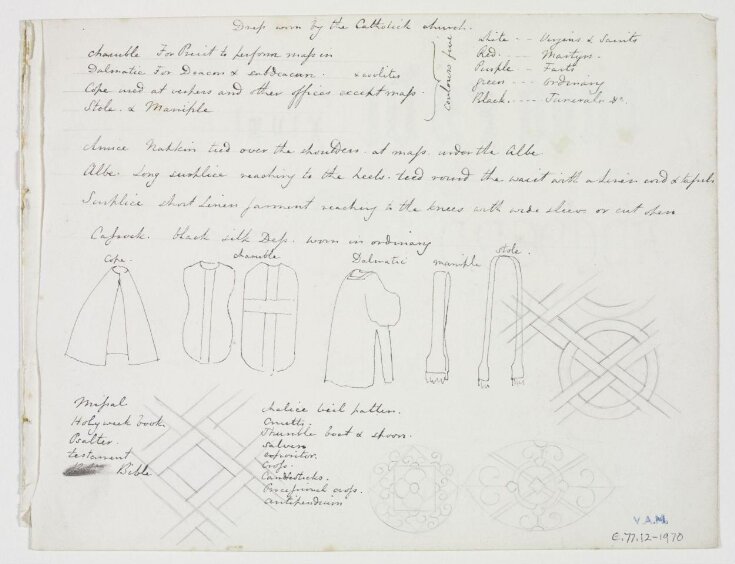 Dress worn by the Catholick church.
chasuble For Priest to perform mass in
Dalmatic For Deacon & subdeacon. & acolites
Cope used at vespers and other offices except mass.
Stole. & Maniple
colours five
white -- Virgins & Saints
Red. ---- Martyrs.
Purple --- Fasts
green ---- ordinary
Black. ---- Funerals &c.
Amice Napkin tied over the shoulders. at mass under the Albe
Albe. Long surplice reaching to the heels. tied round the waist with a linen cord & tassels
Surplice short Linen garment reaching to the knees with wide sleeve or cut open
Cassock. black silk Dress. worn in ordinary
Cope.
chasuble
Dalmatic
maniple
stole.
Missal
Holy week book.
Psalter.
testament
Bible
chalice veil patten.
Cruetts.
Thurible boat & spoon.
salvers
expositor.
Cross.
Candlesticks.
Processional cross.
antipendium
V.A.M.
E.77.12-1970